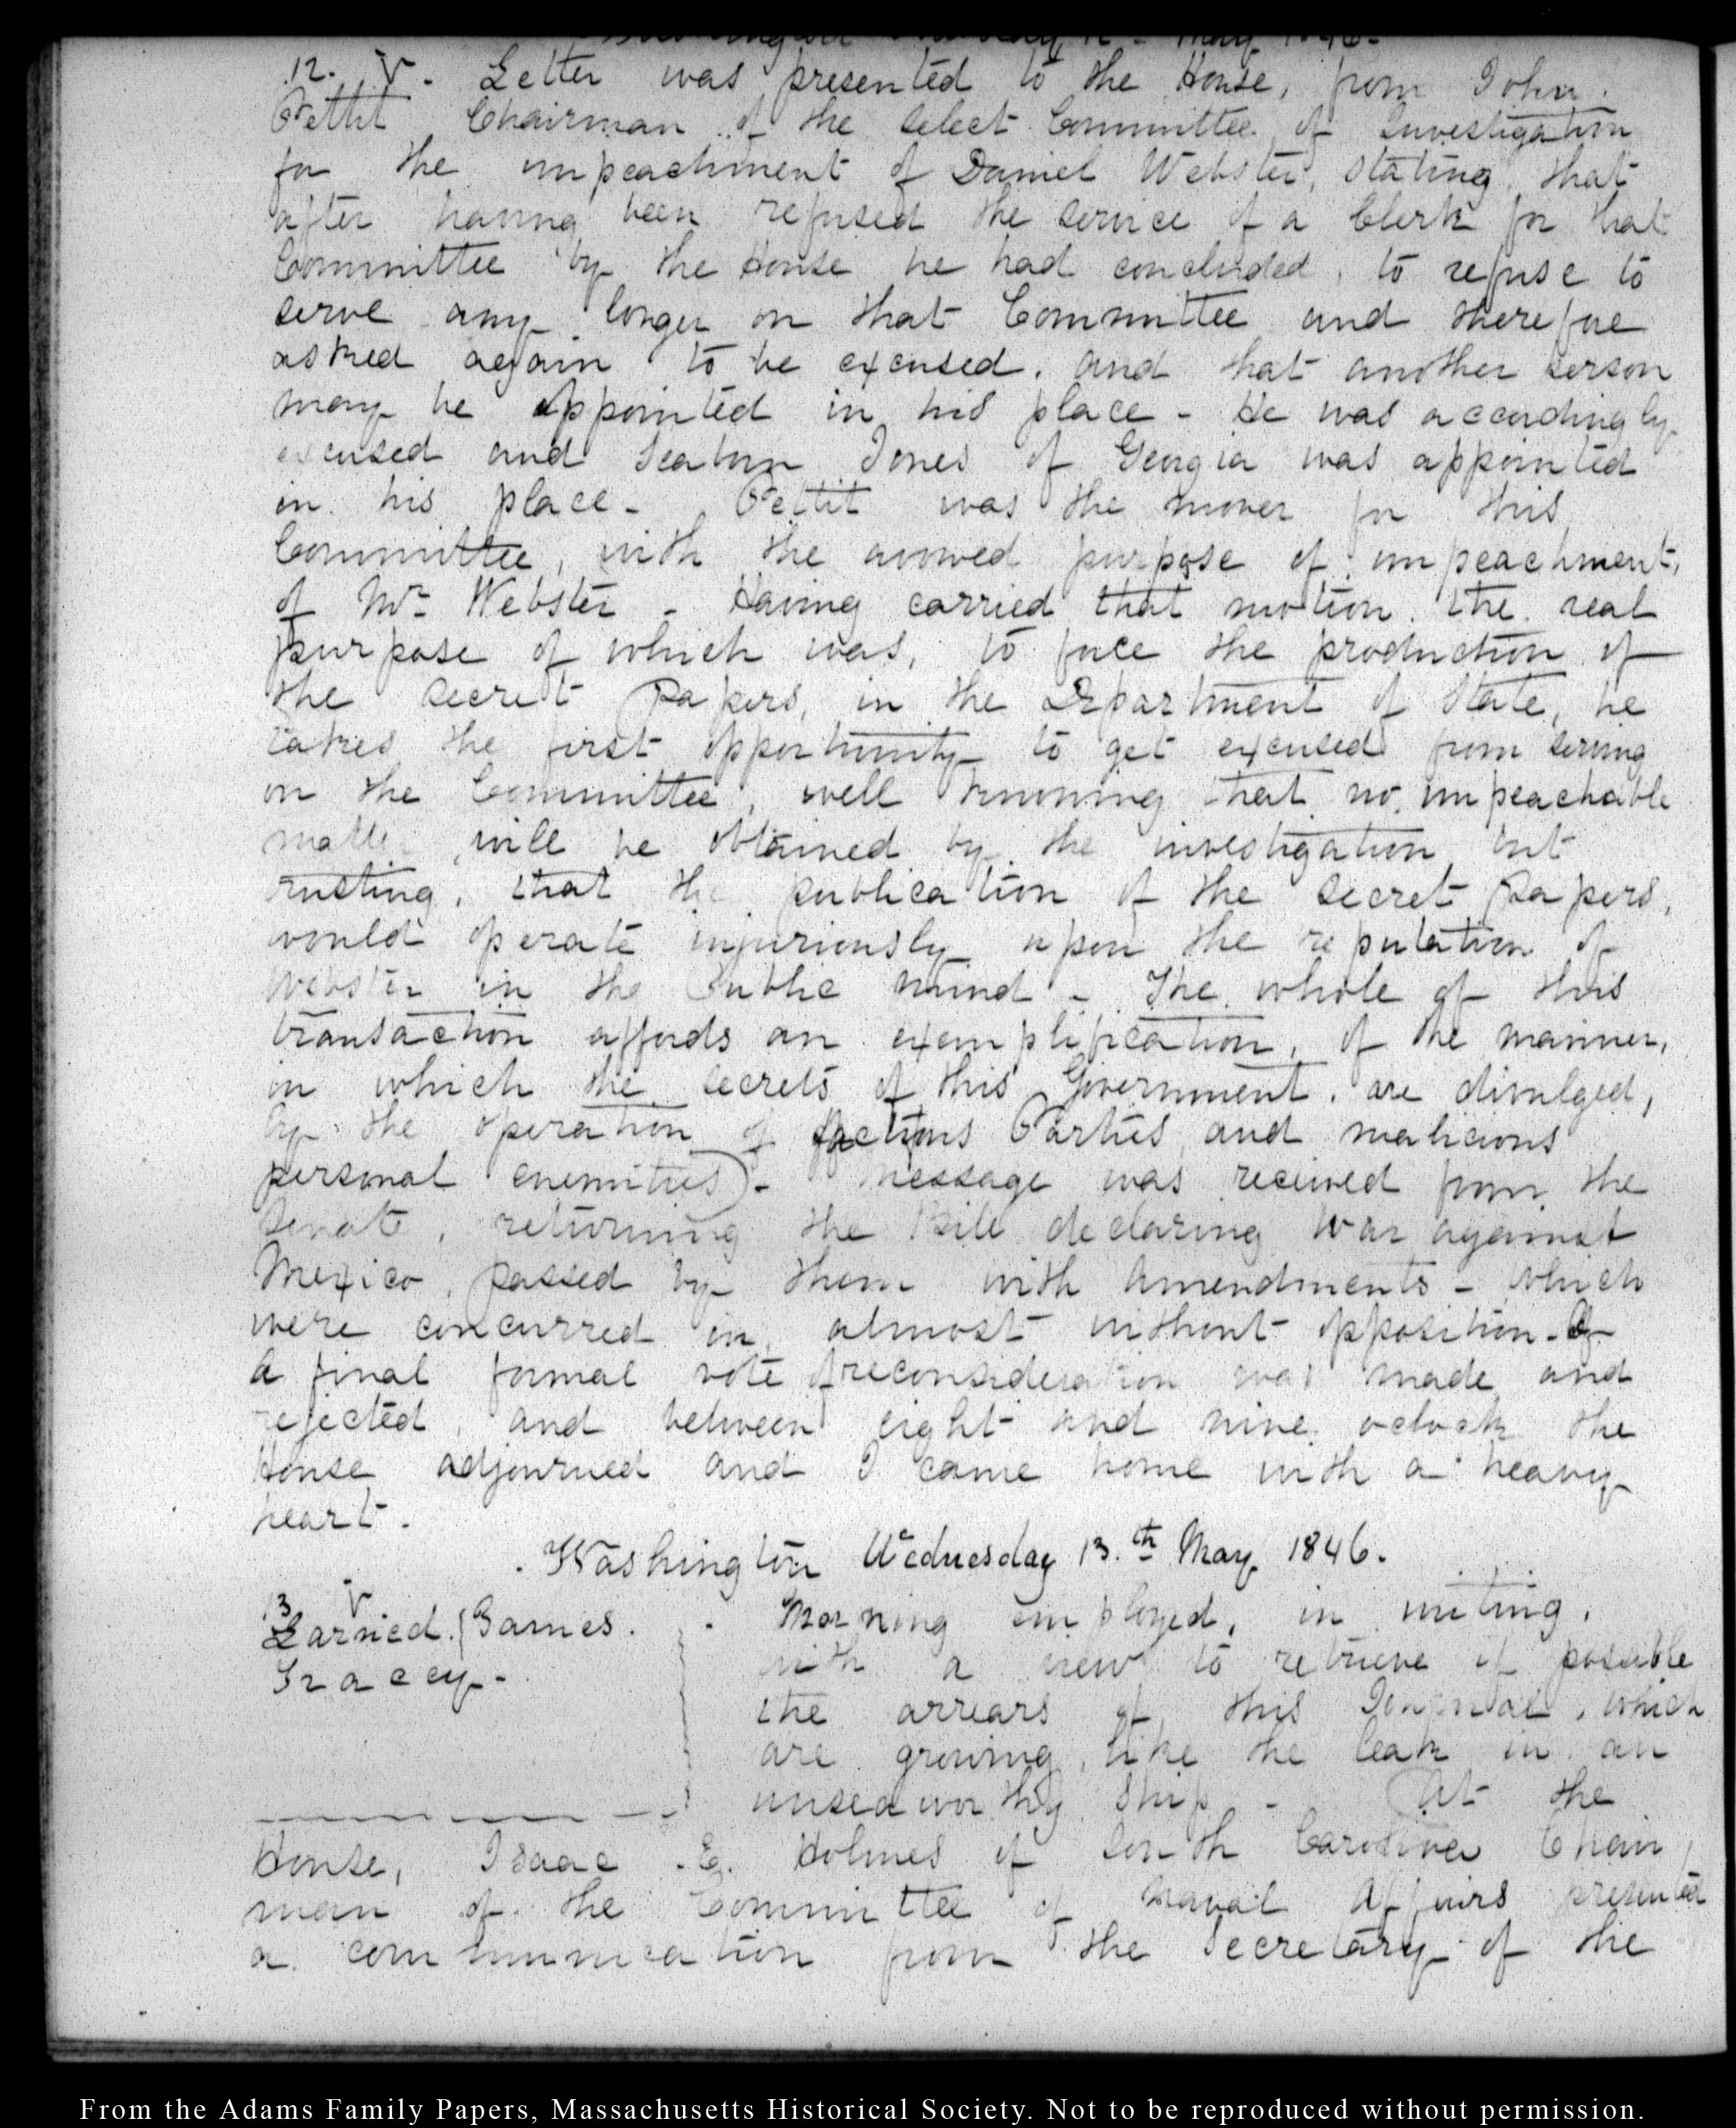 May 1846.
12. V. Letter was presented to the House, from John
Pettit Chairman of the Select Committee of Investigation
for the impeachment of Daniel Webster, stating, that
after having been refused the service of a Clerk for that
Committee by the House he had concluded, to refuse to
serve any longer on that Committee and therefore
asked again to be excused. and that another person
may be appointed in his place - He was accordingly
excused and Seaborn Jones of Georgia was appointed
in his place - Pettit was the mover for this
Committee, with the avowed purpose of impeachment,
of Mr Webster - Having carried that motion. the real
purpose of which was, to force the production of
the secret Papers, in the Department of State, he
takes the first opportunity to get excused from serving
on the Committee, well knowing that no impeachable
matter will be obtained by the investigation but
trusting, that the publication of the secret papers,
would operate injuriously upon the reputation of
Webster in the Public mind - The whole of this
transaction affords an exemplification, of the manner,
in which the secrets of this Government. are divulged,
by the operation of factious Parties and malicious
personal enemities) - Message was received from the
Senate, returning the Bill declaring War against
Mexico, passed by them with Amendments - which
were concurred in, almost without opposition -
A final formal vote of reconsideration was made and
rejected, and between eight and nine oclock the
House adjourned and I came home with a heavy
heart.
Washington Wednesday 13.th May 1846.
13 V
Larned. { Barnes.
Tracey -
Morning employed, in writing.
with a view to retrieve if possible
the arrears of this Journal, which
are growing, like the leak in an
unseaworthy ship - At the
House, Isaac E. Holmes of South Carolina Chair,
man of the Committee of Naval Affairs presented
a communication from the Secretary of the
From the Adams Family Papers, Massachusetts Historical Society. Not to be reproduced without permission.